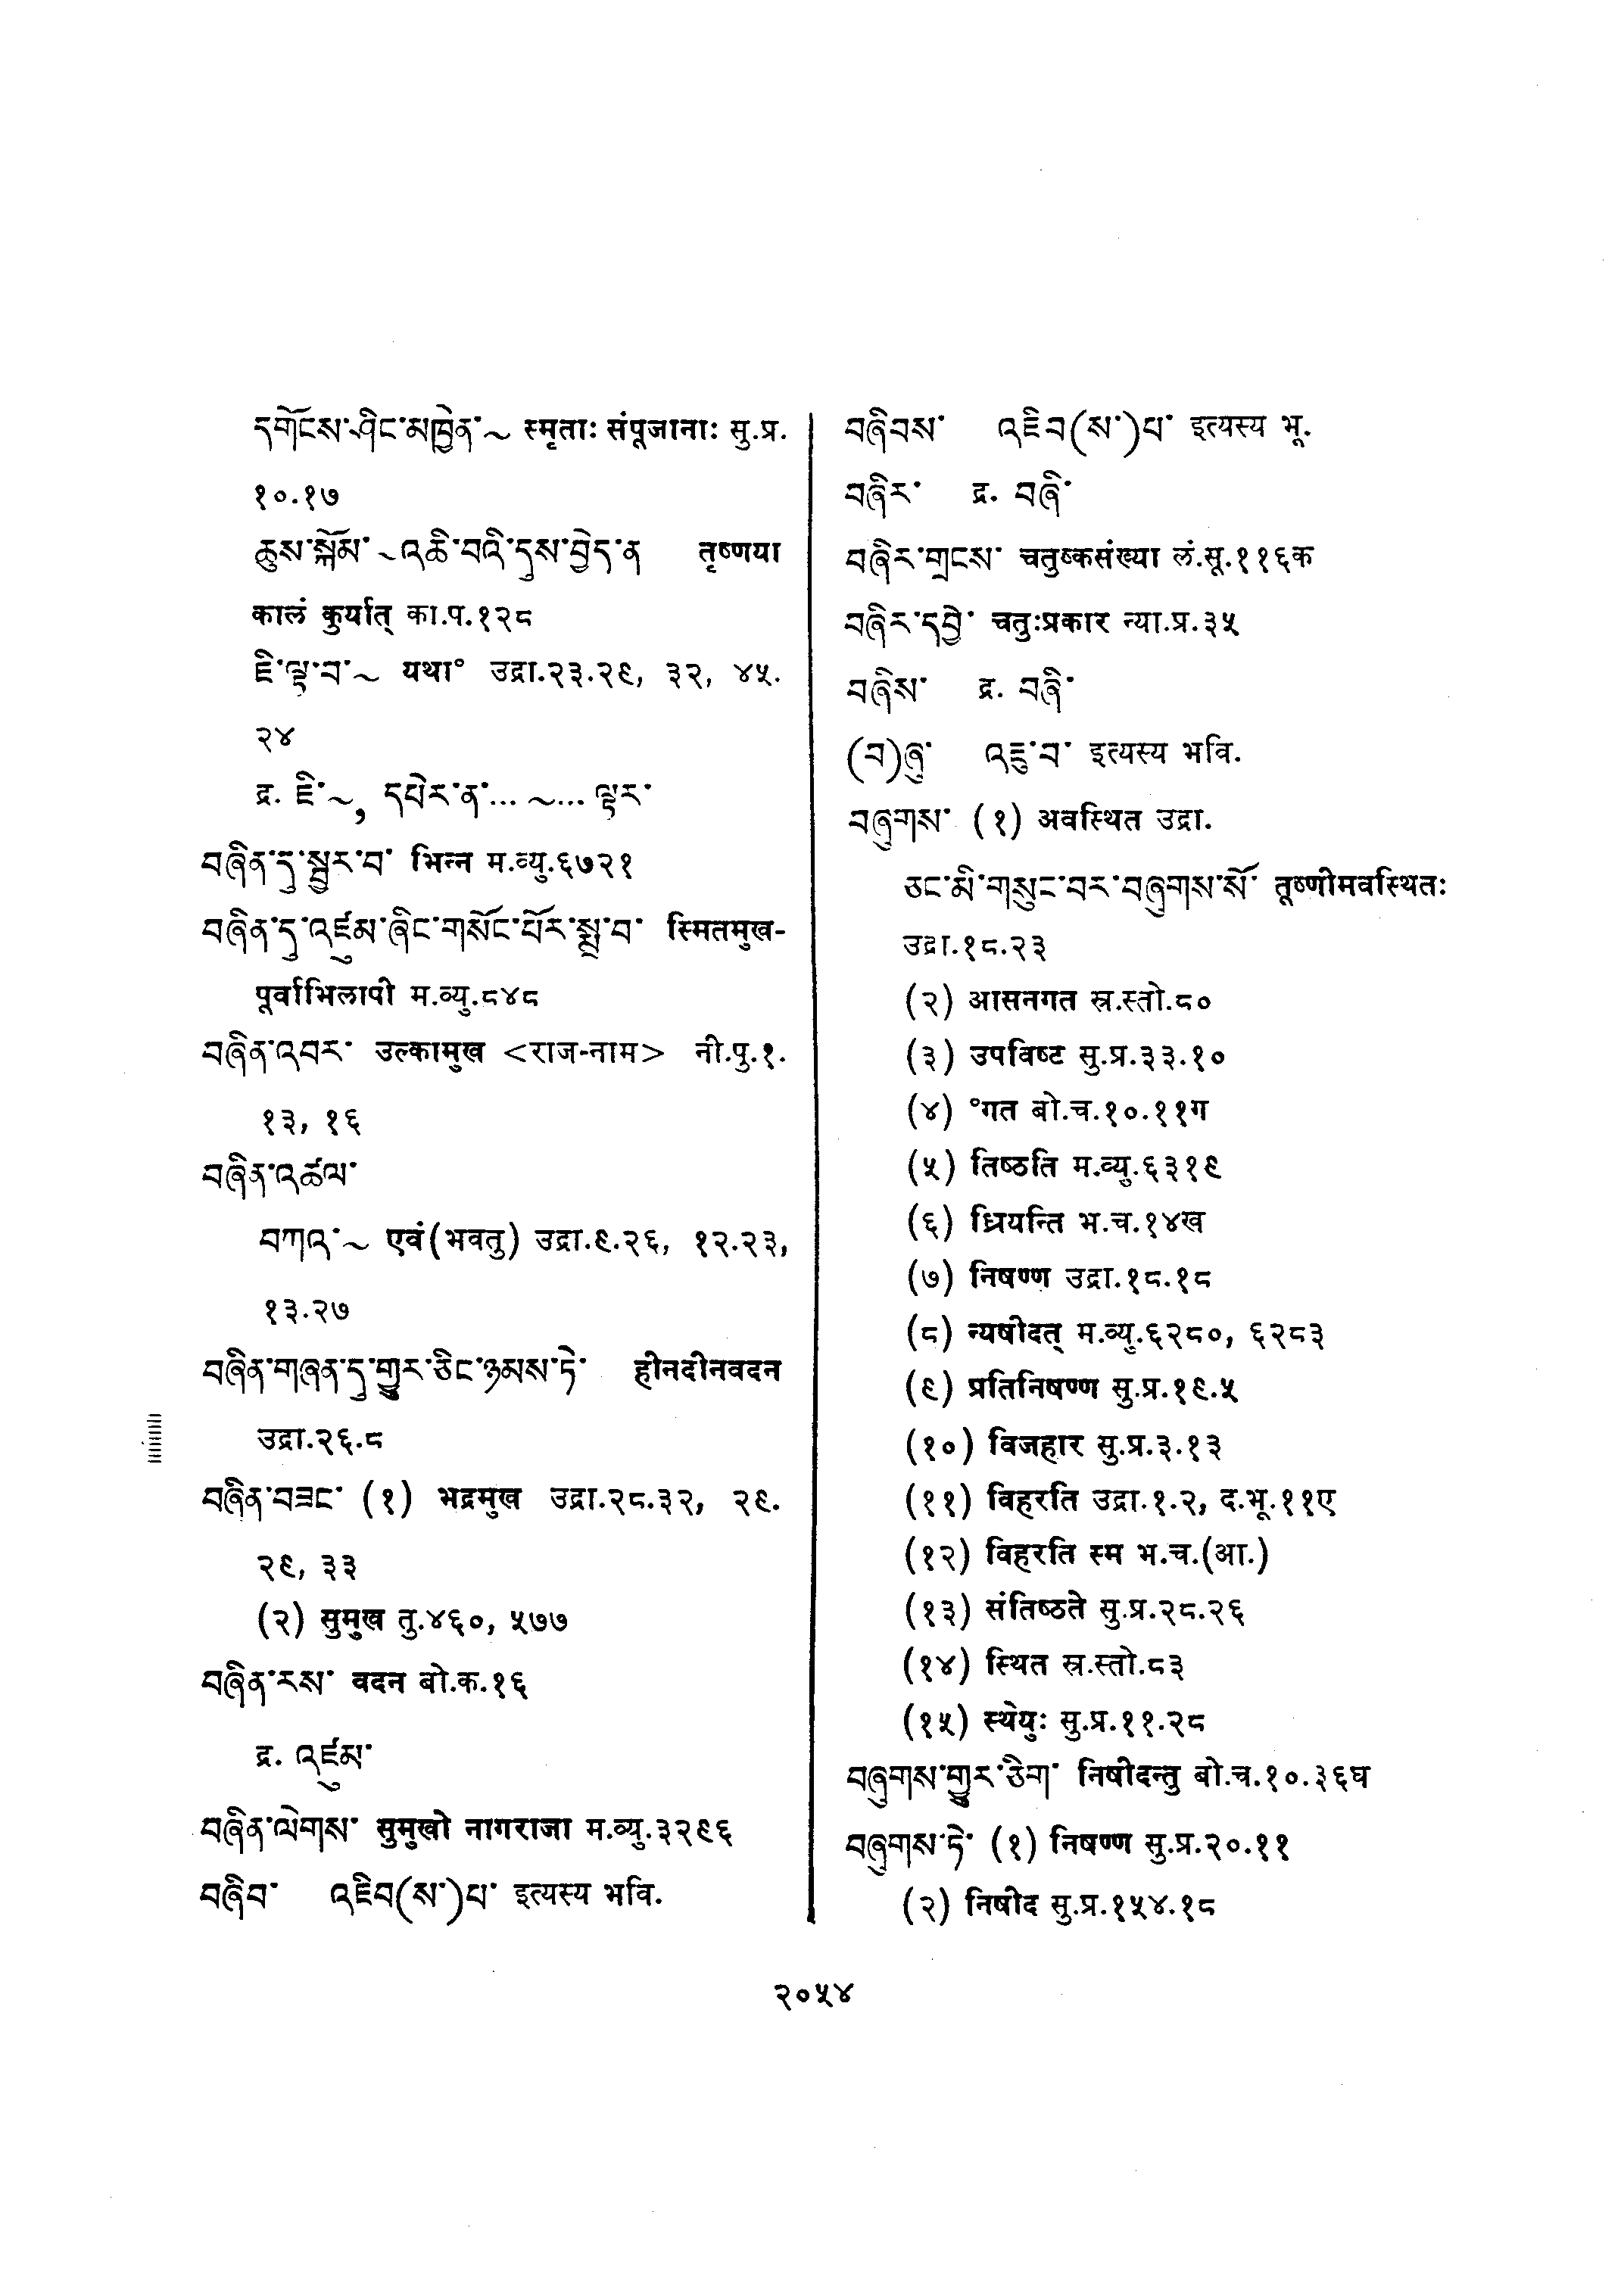 དགོངས་ཤིང་མཁྱེན་~ स्मृताः संपूजानाः सु.प्र.
१०.१७
ཆུས་སྐོམ་~འཆི་བའི་དུས་བྱེད་ན तृष्णया
कालं कुर्यात् का.प.१२८
ཇི་ལྟ་བ་~ यथा° उद्रा.२३.२९, ३२, ४५.
२४
द्र. ཇི་~, དཔེར་ན་... ~... ལྟར་
བཞིན་དུ་སྦྱར་བ་ भिन्न म.व्यु.६७२१
བཞིན་དུ་འཛུམ་ཞིང་གསོང་པོར་སྨྲ་བ་ स्मितमुख-
पूर्वाभिलापी म.व्यु.८४८
བཞིན་འབར་ उल्कामुख <राज-नाम> नी.पु.१.
१३, १६
བཞིན་འཚལ་
བཀའ་~ एवं(भवतु) उद्रा.९.२६, १२.२३,
१३.२७
བཞིན་གཞན་དུ་གྱུར་ཅིང་ཉམས་ཏེ་ हीनदीनवदन
उद्रा.२६.८
བཞིན་བཟང་ (१) भद्रमुख उद्रा.२८.३२, २९.
२९, ३३
(२) सुमुख तु.४६०, ५७७
བཞིན་རས་ वदन बो.क.१६
द्र. འཛུམ་
བཞིན་ལེགས་ सुमुखो नागराजा म.व्यु.३२९६
བཞིབ་ འཇིབ(ས་)པ་ इत्यस्य भवि.
བཞིབས་ འཇིབ(ས་)པ་ इत्यस्य भू.
བཞིར་ द्र. བཞི་
བཞིར་གྲངས་ चतुष्कसंख्या लं.सू.११६क
བཞིར་དབྱེ་ चतुःप्रकार न्या.प्र.३५
བཞིས་ द्र. བཞི་
(བ)ཞུ་ འཇུ་བ་ इत्यस्य भवि.
བཞུགས་ (१) अवस्थित उद्रा.
ཅང་མི་གསུང་བར་བཞུགས་སོ་ तूष्णीमवस्थितः
उद्रा.१८.२३
(२) आसनगत स्र.स्तो.८०
(३) उपविष्ट सु.प्र.३३.१०
(४) °गत बो.च.१०.११ग
(५) तिष्ठति म.व्यु.६३१९
(६) ध्रियन्ति भ.च.१४ख
(७) निषण्ण उद्रा.१८.१८
(८) न्यषीदत् म.व्यु.६२८०, ६२८३
(९) प्रतिनिषण्ण सु.प्र.१९.५
(१०) विजहार सु.प्र.३.१३
(११) विहरति उद्रा.१.२, द.भू.११ए
(१२) विहरति स्म भ.च.(आ.)
(१३) संतिष्ठते सु.प्र.२८.२६
(१४) स्थित स्र.स्तो.८३
(१५) स्थेयुः सु.प्र.११.२८
བཞུགས་གྱུར་ཅིག་ निषीदन्तु बो.च.१०.३६घ
བཞུགས་ཏེ་ (१) निषण्ण सु.प्र.२०.११
(२) निषीद सु.प्र.१५४.१८
२०५४